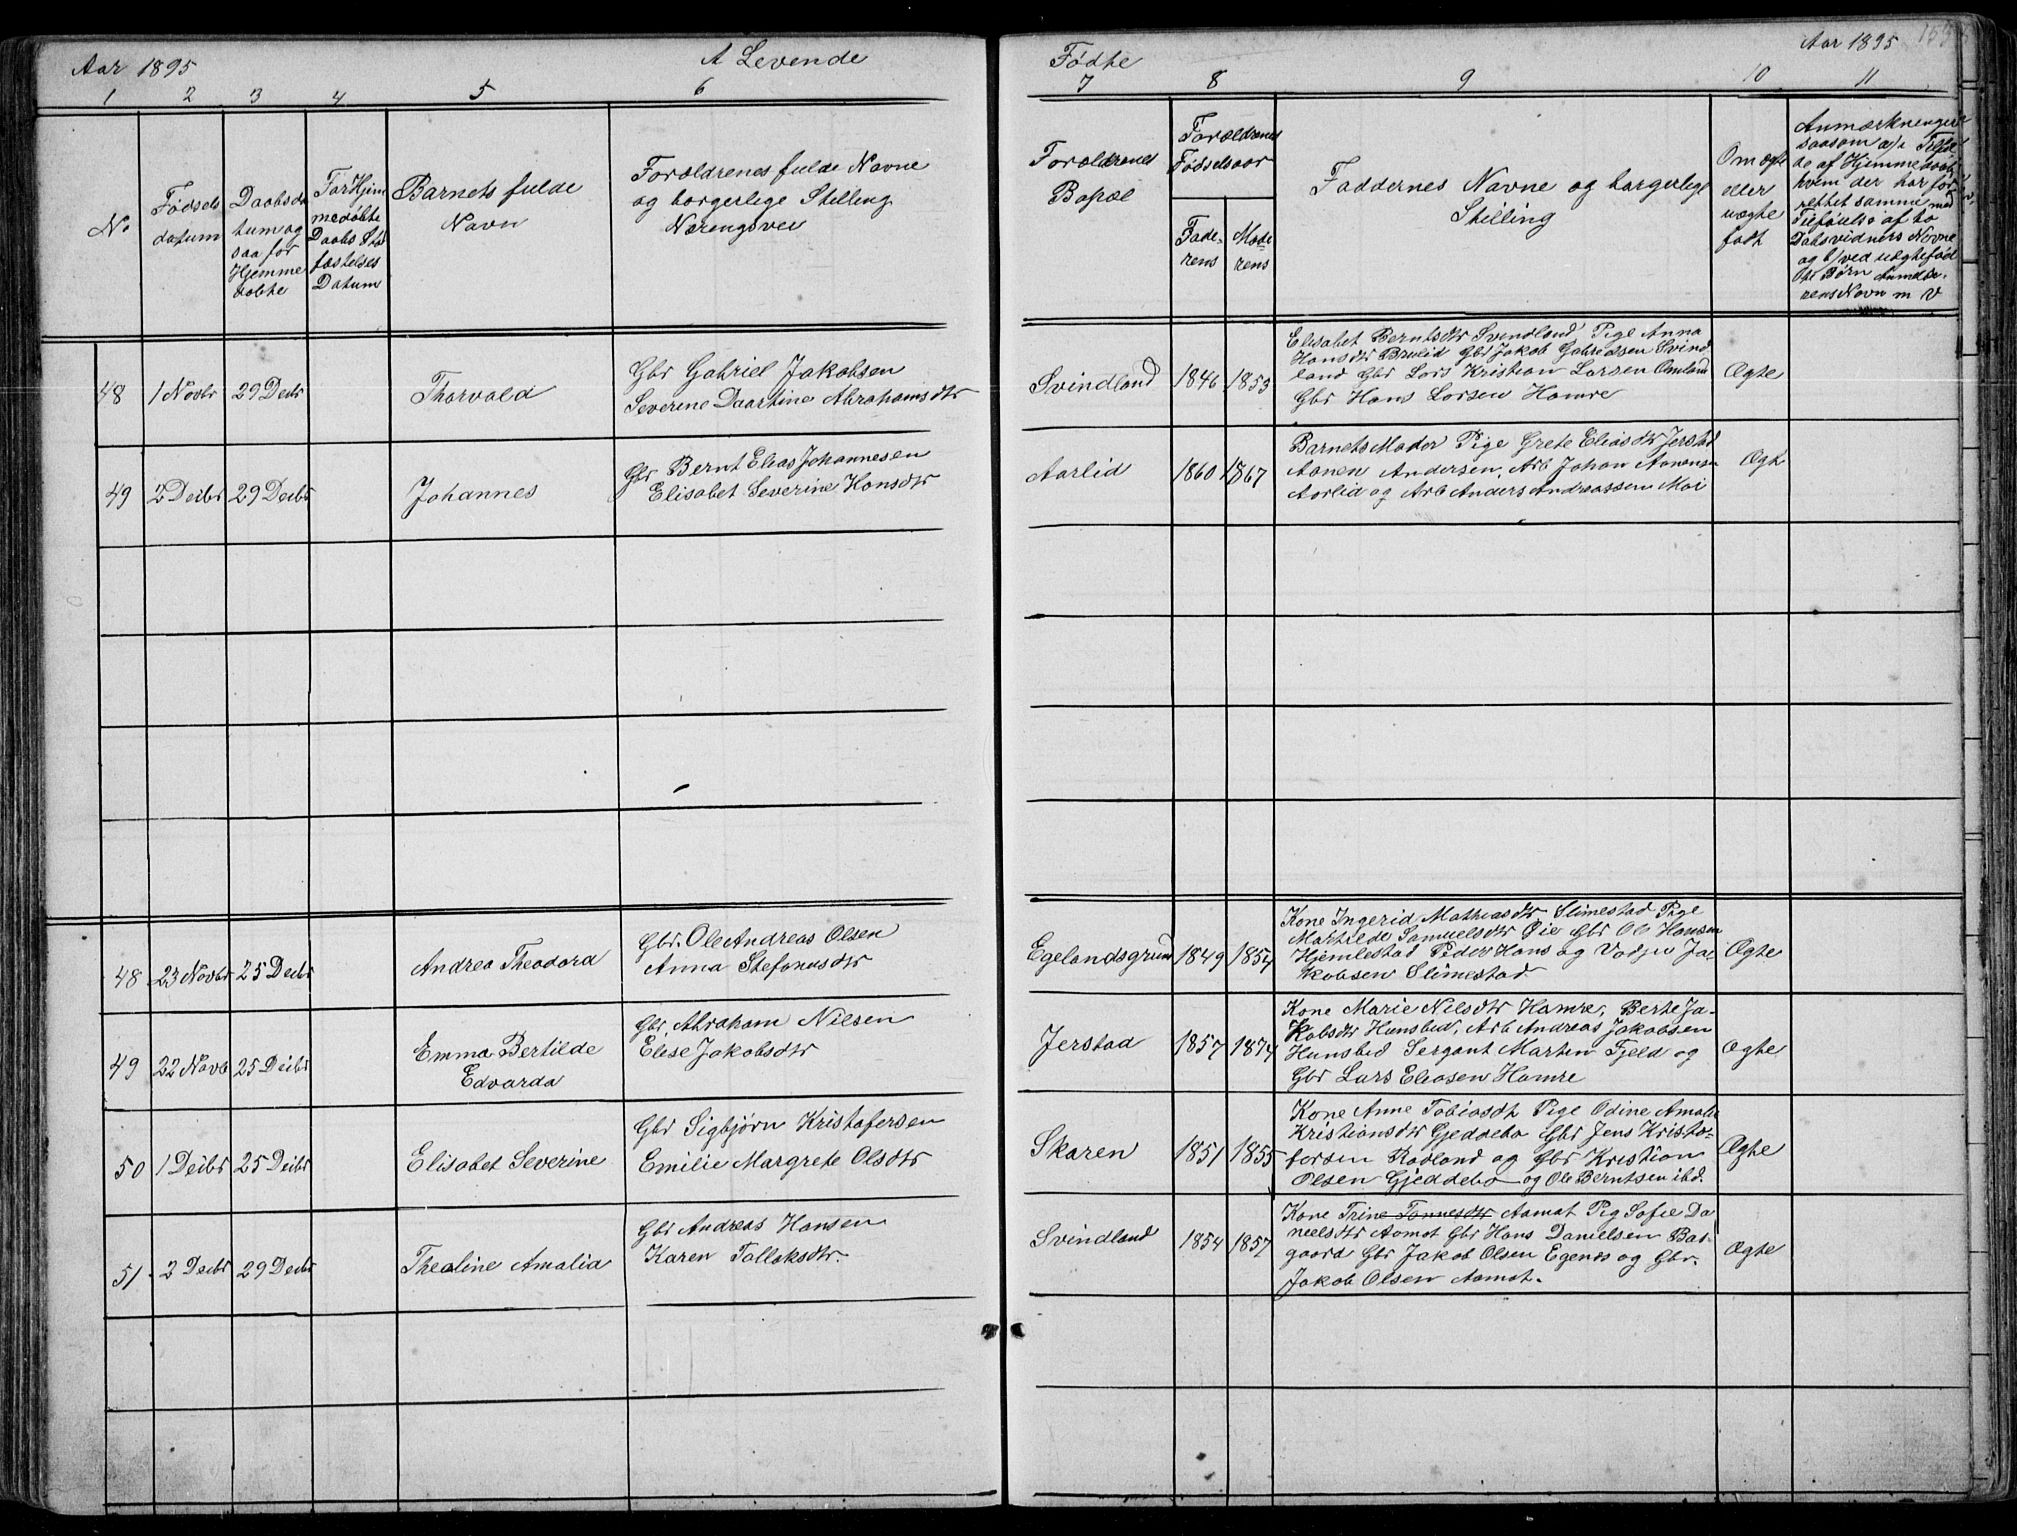 Aar 1895
A Levende
Fødte
Aar 1895
1 2 3 4 5 6 7 8 9 10 11
No
Fødsels
datum
Daabsda
tum og
saa for
Hjemme
døbte
For Hjem
medøbte
Daabs Sta
fæstelses
Datum
Barnets fulde
Navn
Forældrenes fulde Navne
og borgerlige Stilling
Næringsvei
Forældrenes
Bopæl
Forældrenes
Fødselsaar
Fade-
rens
Mode-
rens
Faddernes Navne og borgerlige
Stilling
Om ægte
eller
uægte
født
Anmærkninger
saasom a) i Tilfæl
de af Hjemmedaab
hvem der har for
rettet samme med
Tilføielse af to
Dabsvidners Navne
og b) ved uægtefød
te Børn Anmelde-
rens Navn m V
48 1 Novbr 29 Decbr
Thorvald
Gbr Gabriel Jakobsen
Severine Daartine Abrahamsdtr
Svindland 1846 1853
Elisabet Berntsdtr Svindland Pige Anna
Hansdtr Brelid Gbr Jakob Gabrielsen Svind
land Gbr Lars Kristian Larsen Omland
Gbr Hans Larsen Hamre
Ægte
49 2 Decbr 29 Decbr
Johannes
Gbr Bernt Elias Johannesen
Elisabet Severine Hansdtr
Aarlid 1860 1867
Barnets Moder Pige Grete Eliasdtr Jerstad
Aanen Andersen, Arb Johan Aanensen
Aarlid og Arb Anders Andreassen Moi
Ægt
48 23 Novbr 25 Decbr
Andrea Theodora
Gbr. Ole Andreas Olsen
Anna Stefanusdtr
Egelandsgrund 1849 1854
Kone Ingerid Mathiasdtr Slimestad Pige
Mathilde Samuelsdtr Øie Gbr Ole Hansen
Hjemlestad Peder Hans og Vadju Ja-
kobsen Slimestad
Ægte
49 22 Novb 25 Decbr
Emma Bertilde
Edvarda
Gbr. Abraham Nilsen
Elese Jakobsdtr
Jerstad 1857 1874
Kone Marie Nilsdtr Hamre, Berte Ja-
kobsdtr Hunsbed, Arb Andreas Jakobsen
Hunsbed Sergant Marten Fjeld og
Gbr Lars Eliasen Hamre
Ægte
50 1 Decbr 25 Decbr
Elisabet Severine
Gbr Sigbjørn Kristofersen
Emilie Margrete Olsdtr
Skaren 1851 1855
Kone Anne Tobiasdt Pige Odine Amalie
Kristiansdtr Gjeddebo Gbr Jens Kristo-
fersen Rødland og Gbr Kristian
Olsen Gjeddebo og Ole Berntsen ibd.
Ægte
51 2 Decbr 29 Decbr
Thealine Amalia
Gbr Andreas Hansen
Karen Tallaksdtr.
Svindland 1854 1857
Kone Trine Tønnesdtr Aamot Pig Sofie Da
nielsdtr Aamot Gbr Hans Danielsen Bas-
gaard Gbr Jakob Olsen Egenes og Gbr.
Jakob Olsen Aamot.
Ægte